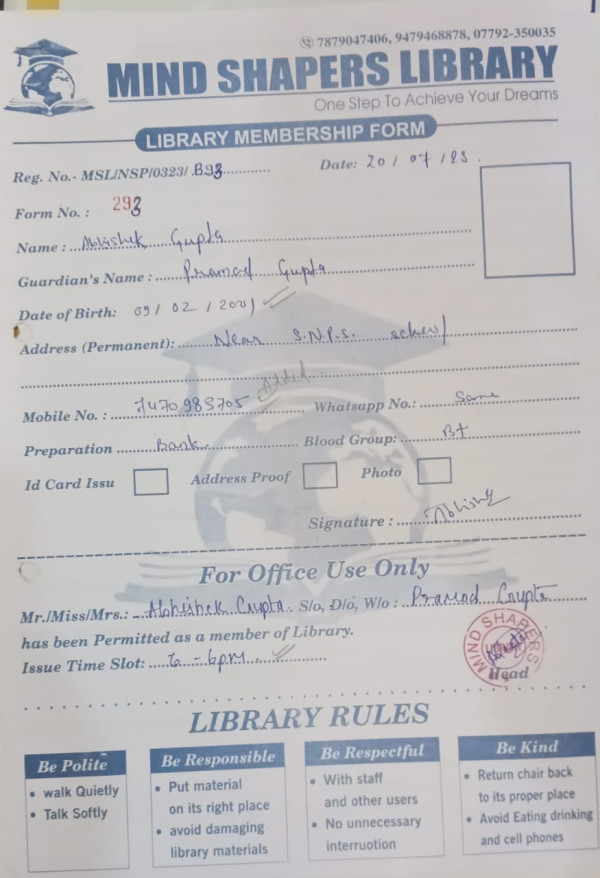 7879047406, 9479468878, 07792-350035
MIND SHAPERS LIBRARY
One Step To Achieve Your Dreams
LIBRARY MEMBERSHIP FORM
Reg. No.- MSL/NSP/0323/ B93 Date: 20/07/23
Form No. : 293
Name : Abhishek Gupta
Guardian's Name : Pramod Gupta
Date of Birth: 09/02/2001
Address (Permanent): Near S.N.P.S. school
Mobile No. : 7470983705 Whatsapp No.: Same
Preparation Bank Blood Group: B+
Id Card Issu Address Proof Photo
Signature : Abhishek
For Office Use Only
Mr./Miss/Mrs.: Abhishek Gupta S/o, D/o, W/o : Pramod Gupta
has been Permitted as a member of Library.
Issue Time Slot: 6 - 6pm
MIND SHAPERS
Head
LIBRARY RULES
Be Polite
walk Quietly
Talk Softly
Be Responsible
Put material
on its right place
avoid damaging
library materials
Be Respectful
With staff
and other users
No unnecessary
interruotion
Be Kind
Return chair back
to its proper place
Avoid Eating drinking
and cell phones